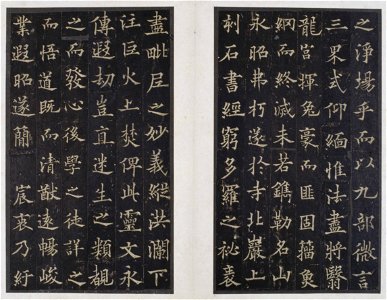 之淨場乎而以九部微言
三果式仰緬惟法盡將翳
龍宮揮兔豪而匪固籀魚
網而終滅未若鐫勒名山
永昭弗朽遂於寺北巖上
刹石書經窮多羅之祕袠
盡毗尼之妙義縱洪瀾下
注巨火上焚俾此靈文永
傳遐劫豈直迷生之類覩
之而發心後學之徒詳之
而悟道既而清猷遠暢峻
業遐昭遂簡 宸衷乃紆